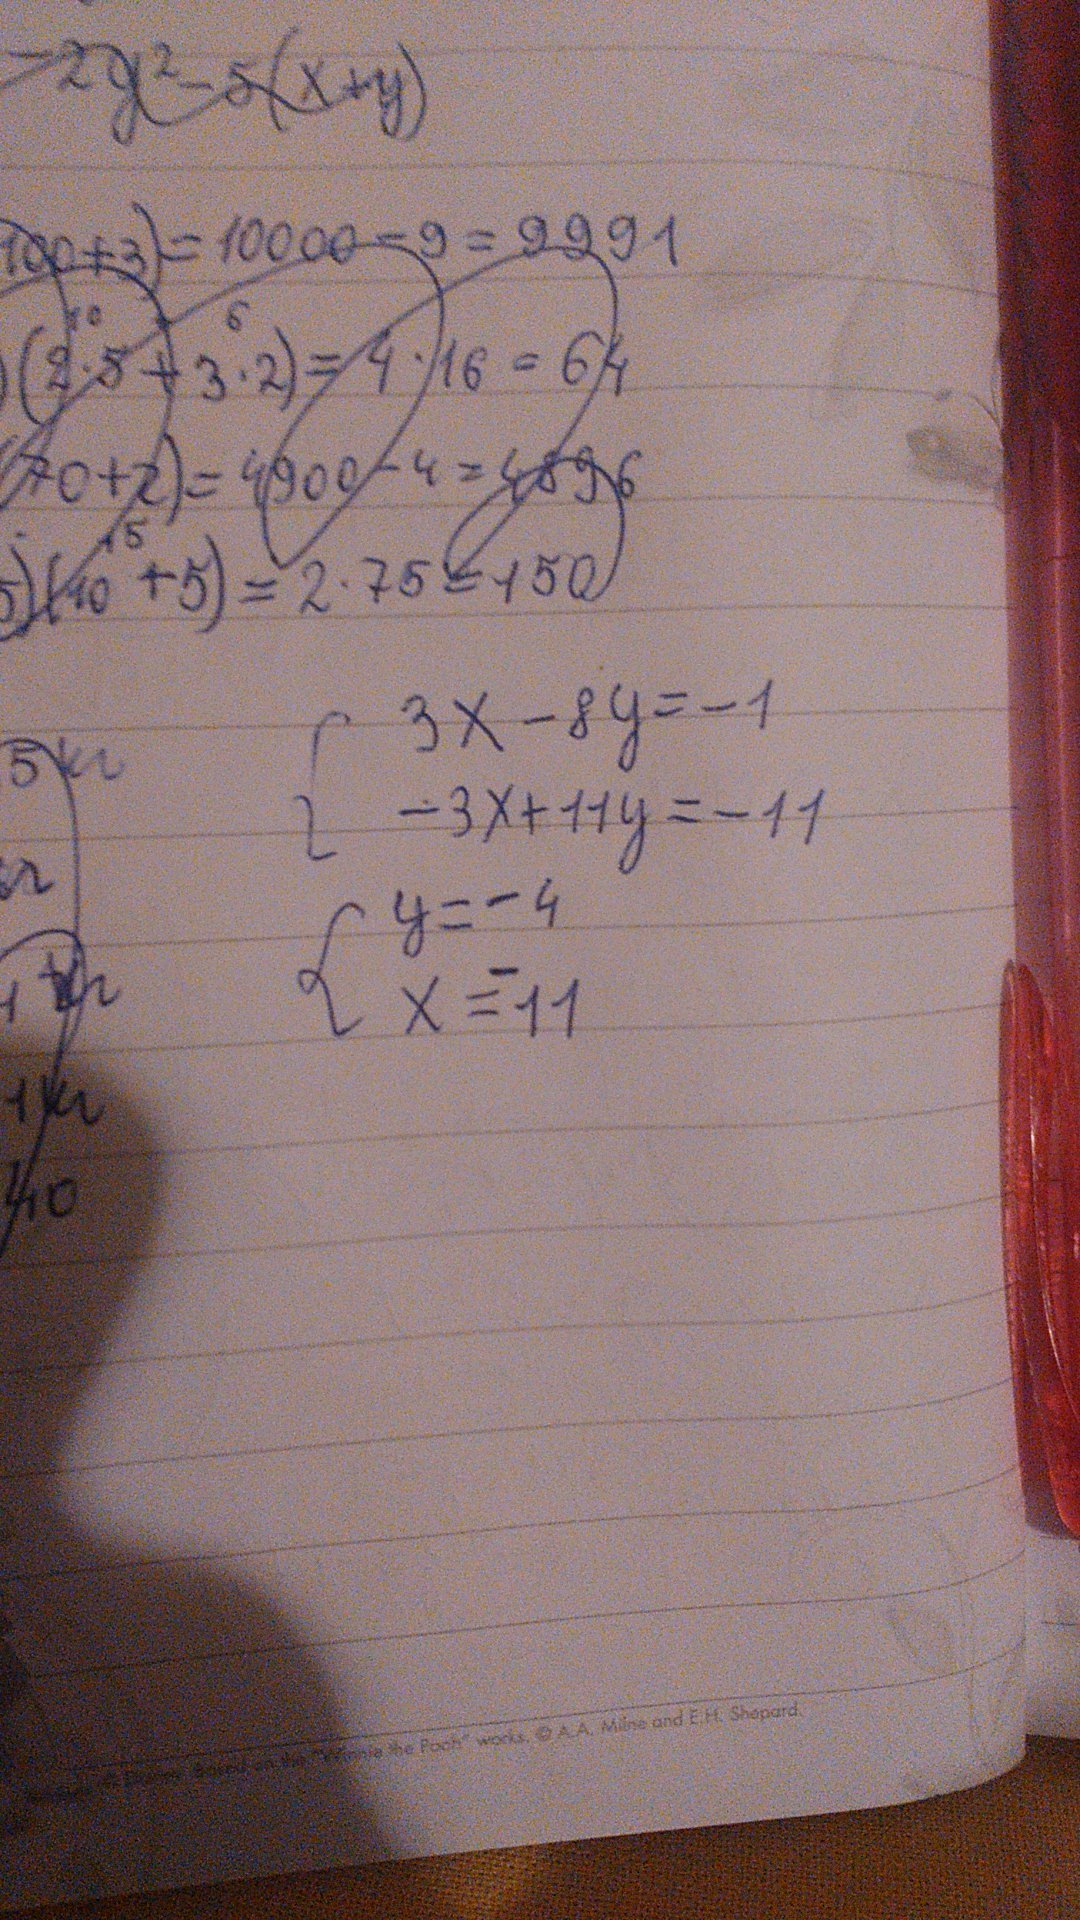 -2y²-5(x+y)
100+3)=10000-9=9991
10 6
)(2·5+3·2)=4·16=64
70+2)=4900-4=4896
15
5)(10+5)=2·75=150
3x-8y=-1
5кг
-3x+11y=-11
y=-4
x=-11
1кг
40
"Winnie the Pooh" works. © A.A. Milne and E.H. Shepard.